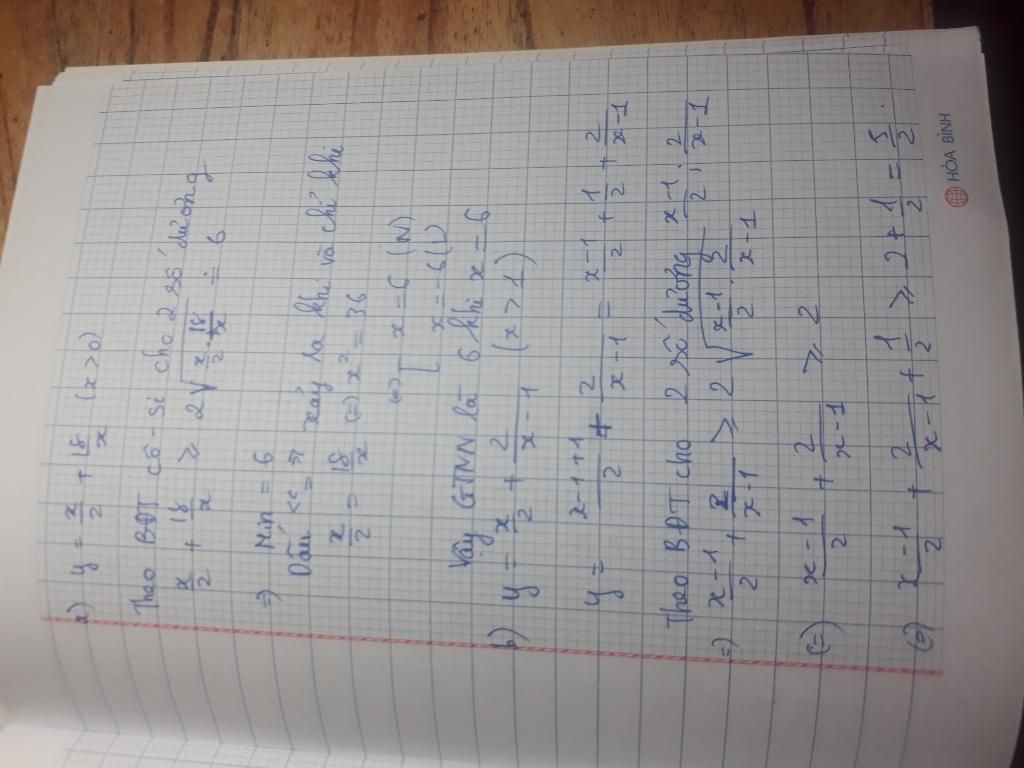 a) y = x/2 + 18/x (x > 0)
Theo BĐT cô-si cho 2 số dương
x/2 + 18/x ≥ 2√(x/2 . 18/x) = 6
=) Min = 6
Dấu "=" xảy ra khi và chỉ khi
x/2 = 18/x (=) x² = 36
(=) [ x = 6 (N)
x = -6 (L)
Vậy GTNN là 6 khi x = 6
b) y = x/2 + 2/(x-1) (x > 1)
y = (x-1+1)/2 + 2/(x-1) = (x-1)/2 + 1/2 + 2/(x-1)
Theo BĐT cho 2 số dương (x-1)/2 ; 2/(x-1)
=) (x-1)/2 + 2/(x-1) ≥ 2√((x-1)/2 . 2/(x-1))
(=) (x-1)/2 + 2/(x-1) ≥ 2
(=) (x-1)/2 + 2/(x-1) + 1/2 ≥ 2 + 1/2 = 5/2
HÒA BÌNH